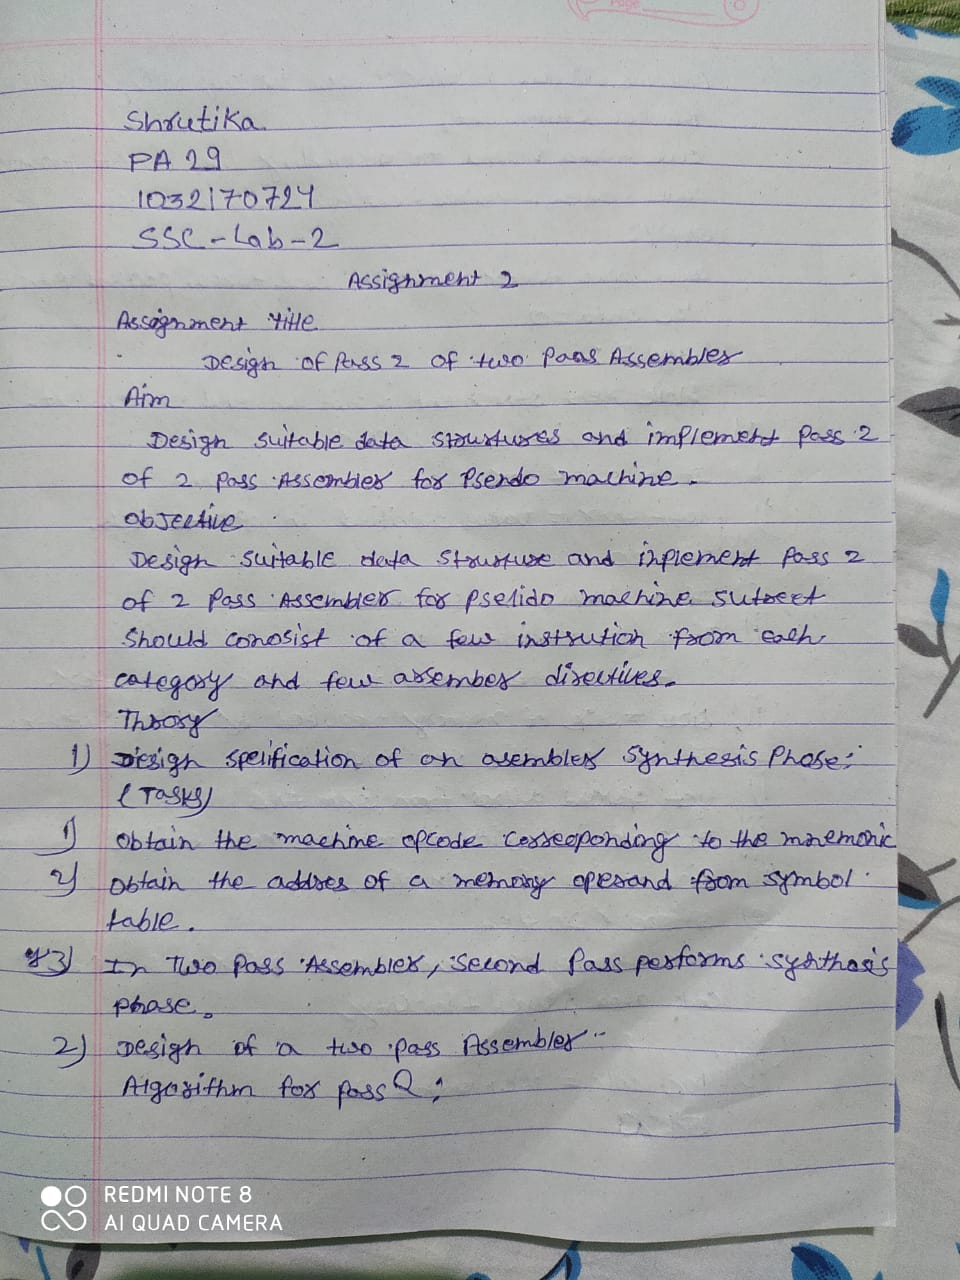 Page
Shrutika
PA 29
1032170724
SSC-Lab-2
Assignment 2
Assignment title
Design of Pass 2 of two Pass Assembler
Aim
Design suitable data structures and implement Pass 2
of 2 pass Assembler for Psendo machine.
Objective
Design suitable data structure and implement Pass 2
of 2 Pass Assembler for Pseudo machine. Subset
should consist of a few instrution from each
category and few assember directives.
Theory
1) Design spelification of an asembler Synthesis Phase:
(Tasks)
1) Obtain the machine opcode corresponding to the mnemonic
2) Obtain the addres of a memory operand from symbol
table.
3) In Two Pass Assembler, Second Pass performs synthasis
phase.
2) Design of a two pass Assembler
Algorithm for pass 2:
REDMI NOTE 8
AI QUAD CAMERA